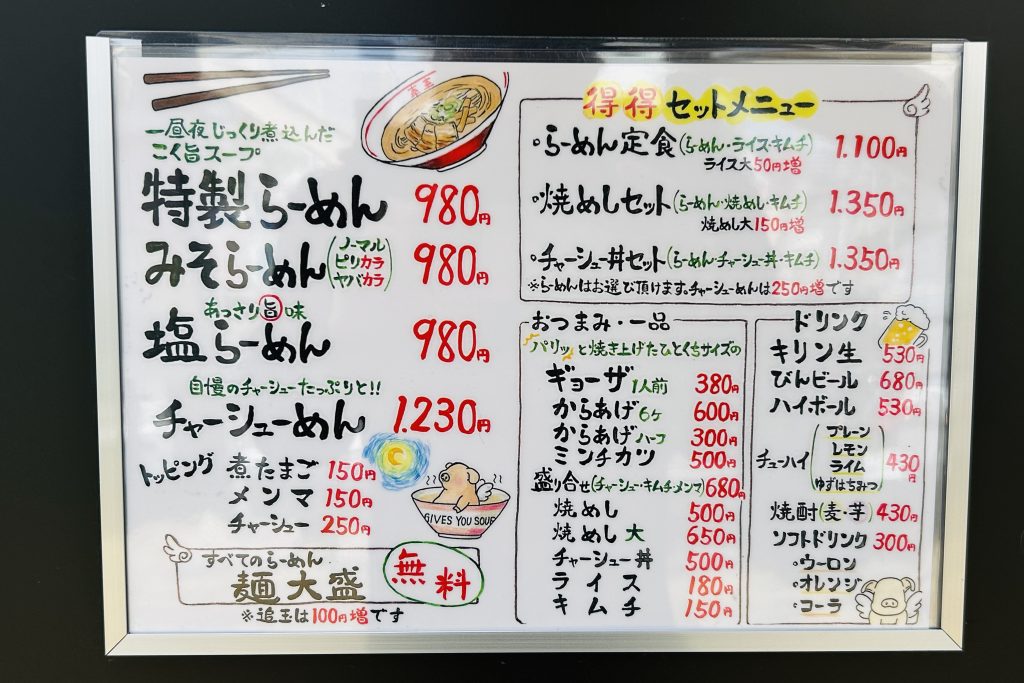 一昼夜じっくり煮込んだ
こく旨スープ
特製らーめん 980円
みそらーめん (ノーマル ピリカラ ヤバカラ) 980円
あっさり旨味
塩らーめん 980円
自慢のチャーシューたっぷりと!!
チャーシューめん 1.230円
トッピング 煮たまご 150円
メンマ 150円
チャーシュー 250円
GIVES YOU SOUP
すべてのらーめん
麺大盛 無料
※追玉は100円増です
得得セットメニュー
・らーめん定食(らーめん・ライス・キムチ) 1.100円
ライス大50円増
・焼めしセット(らーめん・焼めし・キムチ) 1.350円
焼めし大150円増
・チャーシュー丼セット(らーめん・チャーシュー丼・キムチ) 1.350円
※らーめんはお選び頂けます。チャーシューめんは250円増です
おつまみ・一品
パリッと焼き上げたひとくちサイズの
ギョーザ 1人前 380円
からあげ 6ケ 600円
からあげ ハーフ 300円
ミンチカツ 500円
盛り合せ(チャーシュー・キムチ・メンマ) 680円
焼めし 500円
焼めし 大 650円
チャーシュー丼 500円
ライス 180円
キムチ 150円
ドリンク
キリン生 530円
びんビール 680円
ハイボール 530円
チューハイ (プレーン レモン ライム ゆずはちみつ) 430円
焼酎(麦・芋) 430円
ソフトドリンク 300円
・ウーロン
・オレンジ
・コーラ